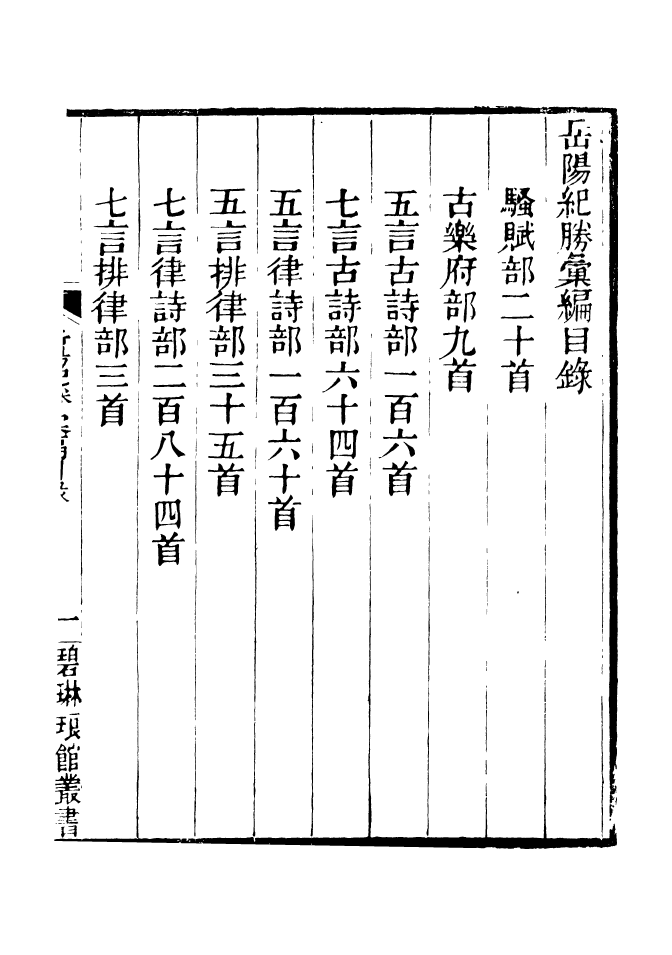 岳陽紀勝彙編目錄
騷賦部二十首
古樂府部九首
五言古詩部一百六首
七言古詩部六十四首
五言律詩部一百六十首
五言排律部三十五首
七言律詩部二百八十四首
七言排律部三首
一 碧琳琅館叢書